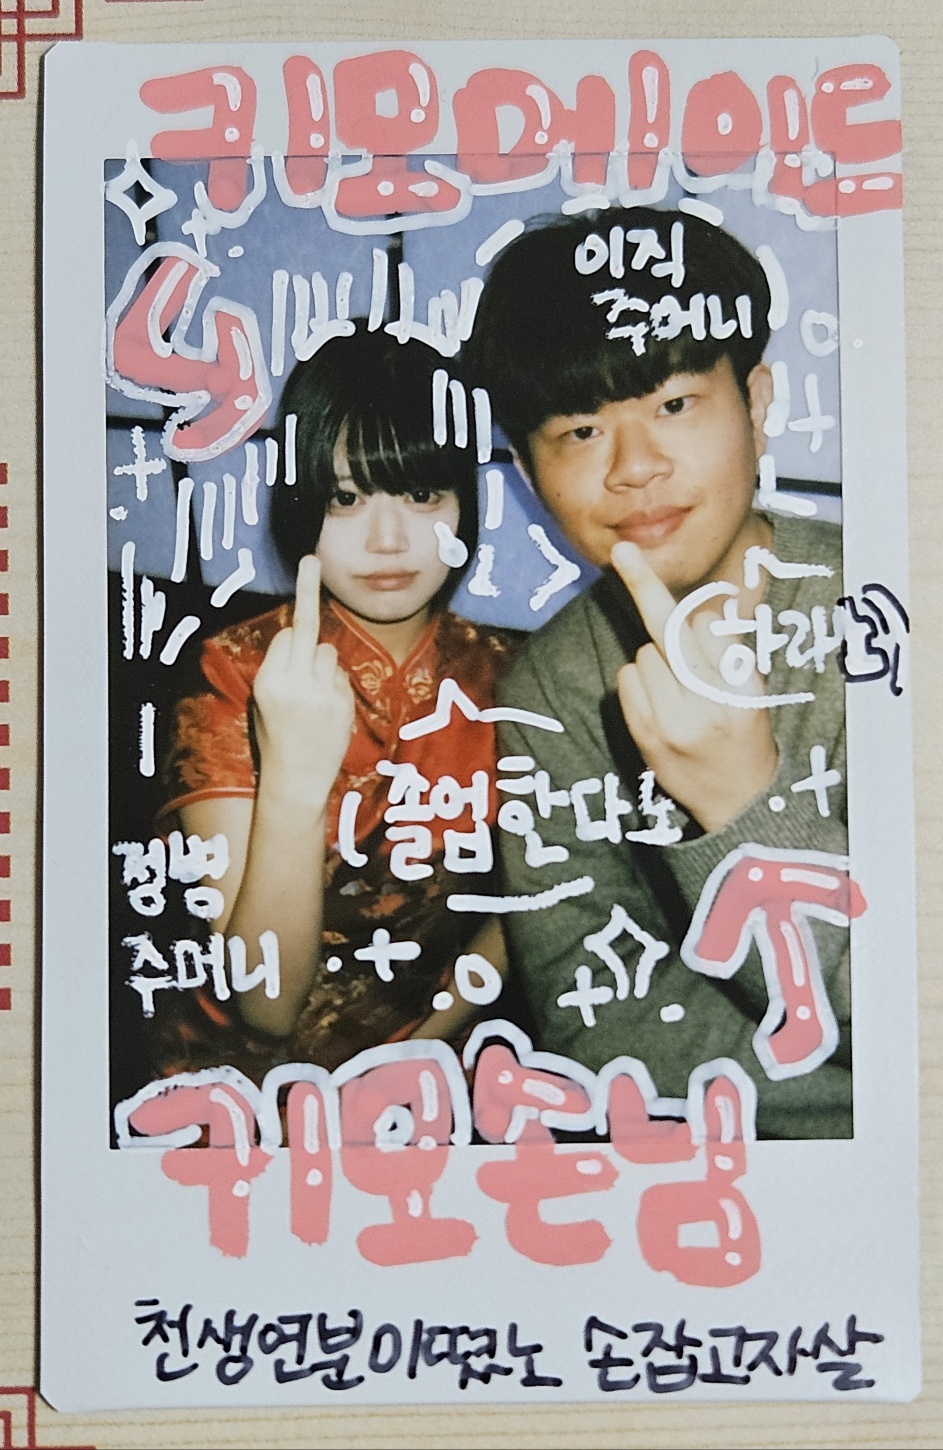 키모메이드
이직
주머니
(하라넷)
(졸업한다노
정병
주머니
키모손님
천생연분이떴노 손잡고자살